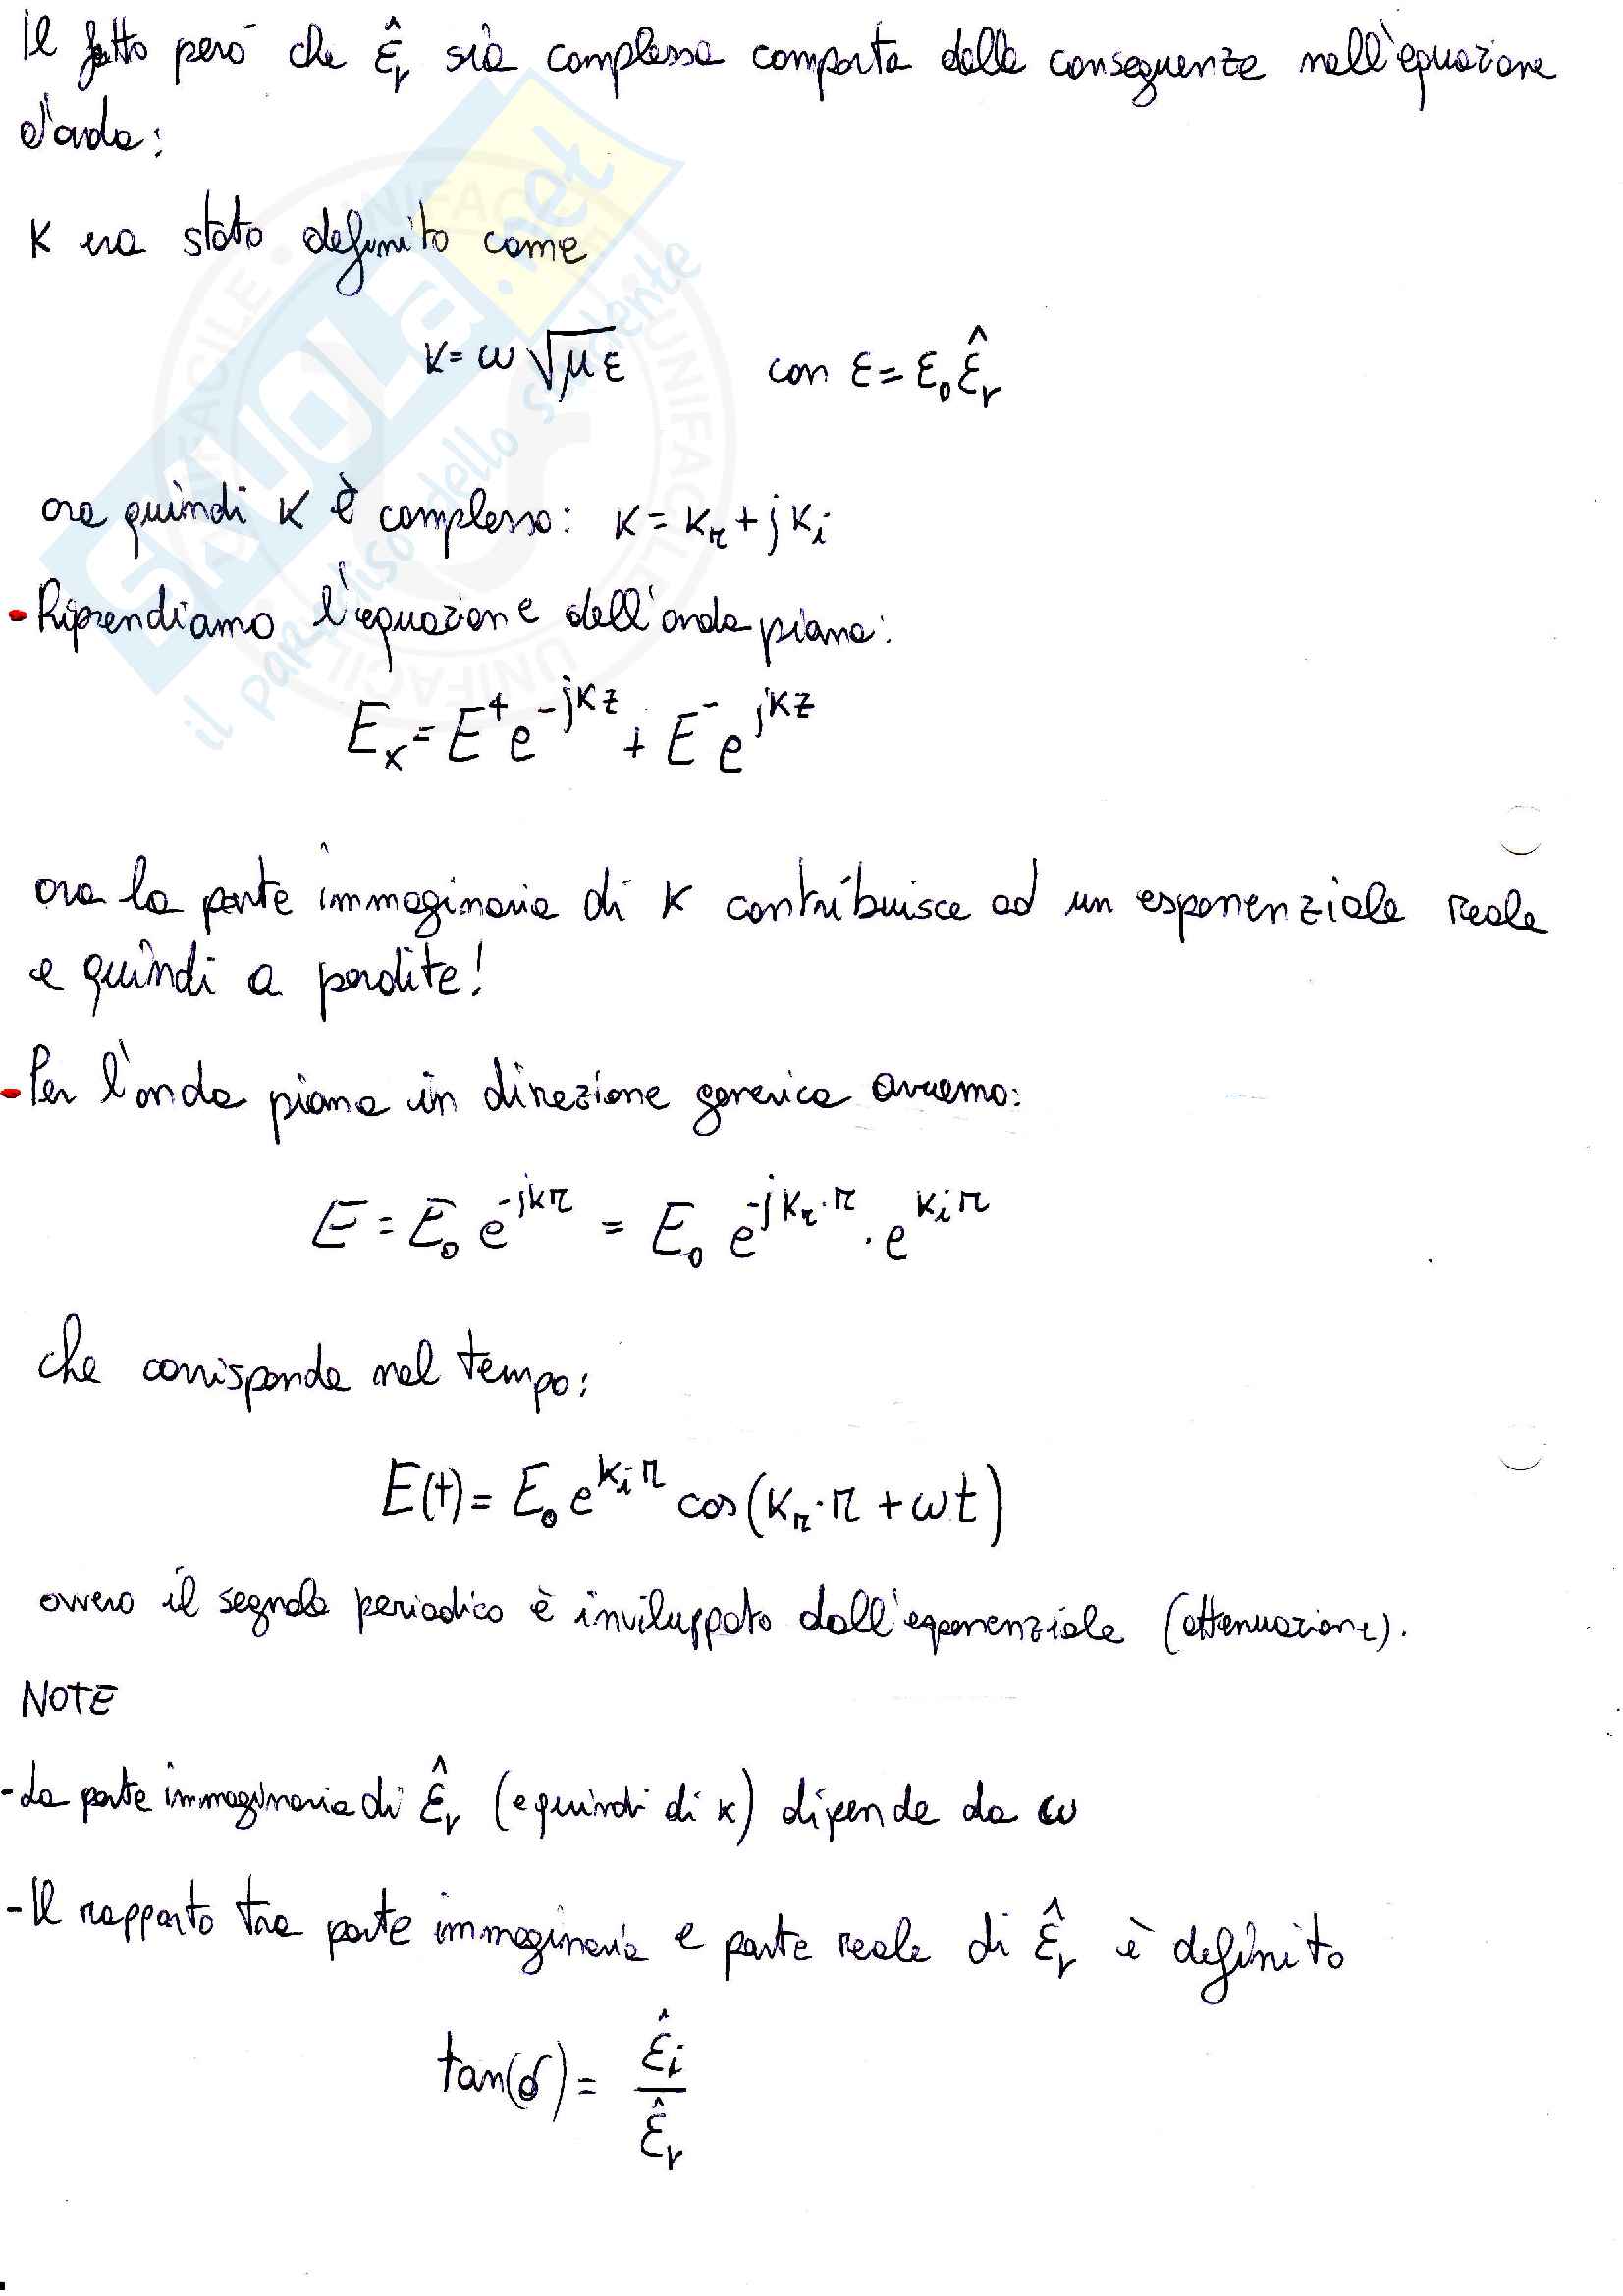 Il fatto però che ε̂r sia complessa comporta delle conseguenze nell'equazione
d'onda:
K era stato definito come
K = ω √με con ε = ε₀ ε̂r
ora quindi K è complesso: K = Kr + j Ki
- Riprendiamo l'equazione dell'onda piana:
Ex = E⁺ e^(-jKz) + E⁻ e^(jKz)
ora la parte immaginaria di K contribuisce ad un esponenziale reale
e quindi a perdite!
- Per l'onda piana in direzione generica avremo:
E = E₀ e^(-jkr) = E₀ e^(-jKr·r) · e^(Ki r)
che corrisponde nel tempo:
E(t) = E₀ e^(Ki r) cos(Kr·r + ωt)
ovvero il segnale periodico è inviluppato dall'esponenziale (attenuazione).
NOTE
- La parte immaginaria di ε̂r (e quindi di K) dipende da ω
- Il rapporto tra parte immaginaria e parte reale di ε̂r è definito
tan(δ) = ε̂i / ε̂r
SKUOLA.net
il paradiso dello studente
UNIFACILE · UNIFACILE · UNIFACILE